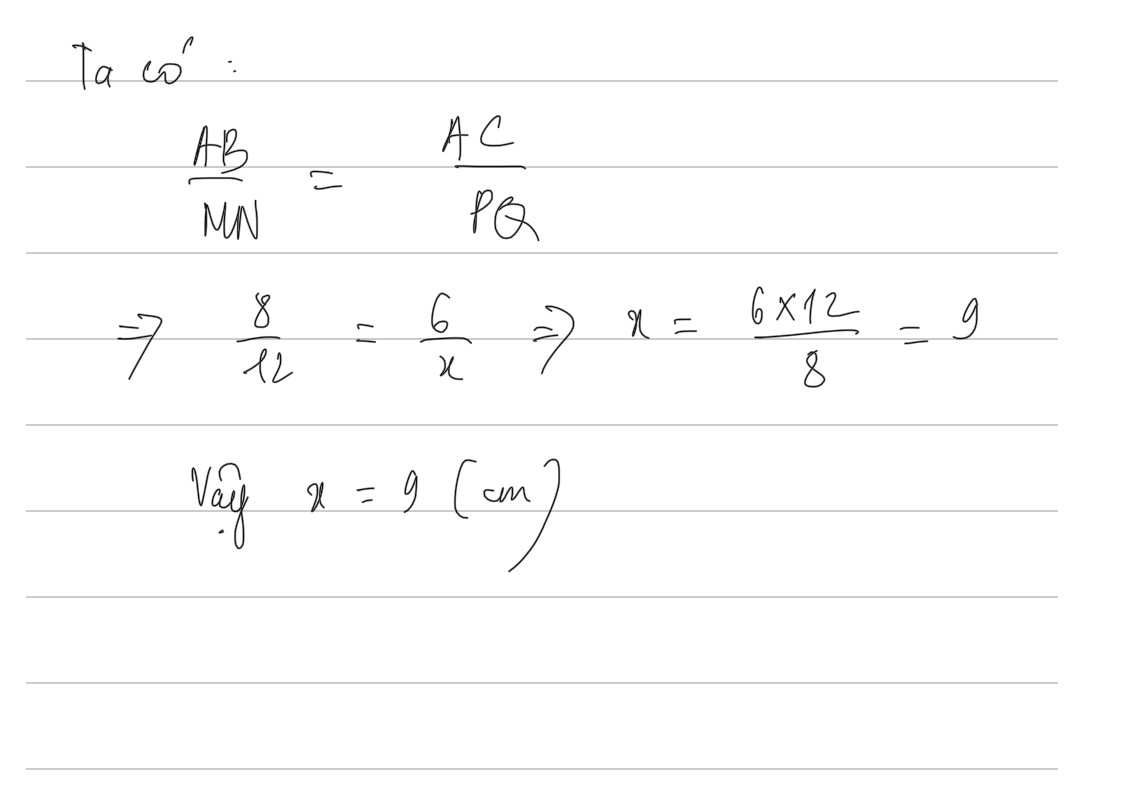 Ta có :
AB/MN = AC/PQ
⇒ 8/12 = 6/x ⇒ x = 6×12/8 = 9
Vậy x = 9 (cm)